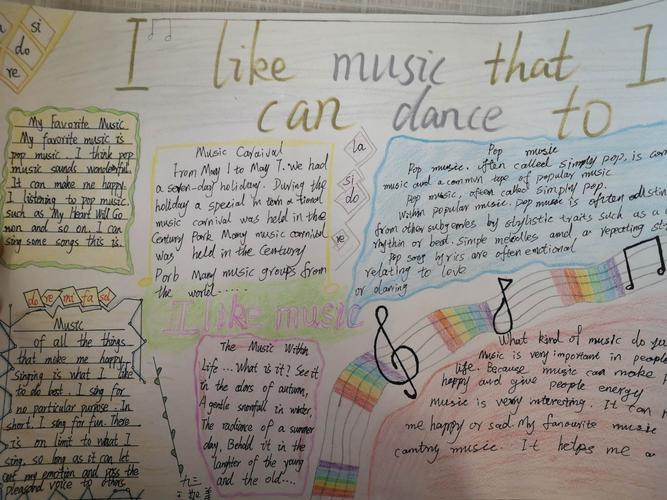 I like music that I
can dance to
si
do
re
My Favorite Music
My favorite music is
pop music. I think pop
music sounds wonderful.
It can make me happy.
I listening to pop music
such as My Heart Will Go
non and so on. I can
sing some songs this is.
Music Carnival
From May 1 to May 7. we had
a seven-day holiday. During the
holiday a special in turn a tional
music carnival was held in the
Century Park Many music carnival
was held in the Century
Porb Many music groups from
the world......
la
si
do
re
Pop music
Pop music, often called simply pop, is con
music and a common type of popular music
Pop music, often called simply pop.
Within popular music. Pop music is often
from other subgenres by stylistic traits such as a
rhythm or beat. simple melodies and a repeating st
Pop song lyrics are often emotional
relating to love
or dancing
I like music
do re mi fa sol
Music
of all the things
that make me happy.
Singing is what I like
to do best. I sing for
no particular purpose. In
short. I sing for fun. There
is on limit to what I
sing, so long as it can let
out my emotion and pass the
pleasand voice to others
The Music Within
Life... What is it? See it
in the colors of autumn,
A gentle snowfall in winter,
The radiance of a summer
day, Behold it in the
laughter of the young
and the old....
What kind of music do you
Music is very important in people
life. Because music can make
happy and give people energy
music is very interesting. It can
me happy or sad. My fanourite music
cantny music. It helps me
九三